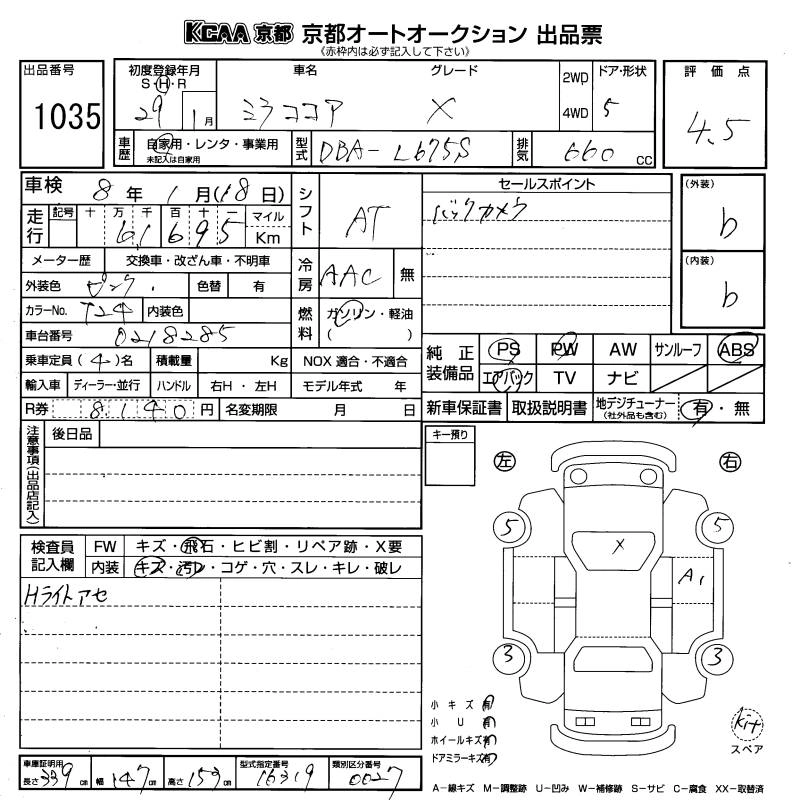 KCAA 京都 京都オートオークション 出品票
《赤枠内は必ず記入して下さい》
出品番号 1035
初度登録年月 S・H・R 29年 1月
車名 ミラココア
グレード X
2WD 4WD
ドア・形状 5
評価点 4.5
車歴 自家用・レンタ・事業用 未記入は自家用
型式 DBA-L675S
排気 660 CC
車検 8年 1月(18日)
走行 記号 十 万 千 百 十 一 マイル Km
61695
メーター歴 交換車・改ざん車・不明車
外装色 ピンク 色替 有
カラーNo. T24 内装色
車台番号 0218285
乗車定員 (4)名 積載量 Kg
輸入車 ディーラー・並行 ハンドル 右H・左H
R券 8140円 名変期限 月 日
シフト AT
冷房 AAC 無
燃料 ガソリン・軽油 ( )
NOX 適合・不適合
モデル年式 年
セールスポイント
バックカメラ
(外装) b
(内装) b
純正装備品 PS PW AW サンルーフ ABS
エアバック TV ナビ
新車保証書 取扱説明書 地デジチューナー (社外品も含む) 有・無
注意事項(出品店記入)
後日品
キー預り
左 右
5 5
X
A1
3 3
検査員記入欄
FW キズ・飛石・ヒビ割・リペア跡・X要
内装 キズ・汚レ・コゲ・穴・スレ・キレ・破レ
Hライトアセ
小キズ 有
小U 有
ホイールキズ 有
ドアミラーキズ 有
kit
スペア
車庫証明用 長さ 339cm 幅 147cm 高さ 153cm
型式指定番号 16319
類別区分番号 0027
A―線キズ M―調整跡 U―凹み W―補修跡 S―サビ C―腐食 XX―取替済